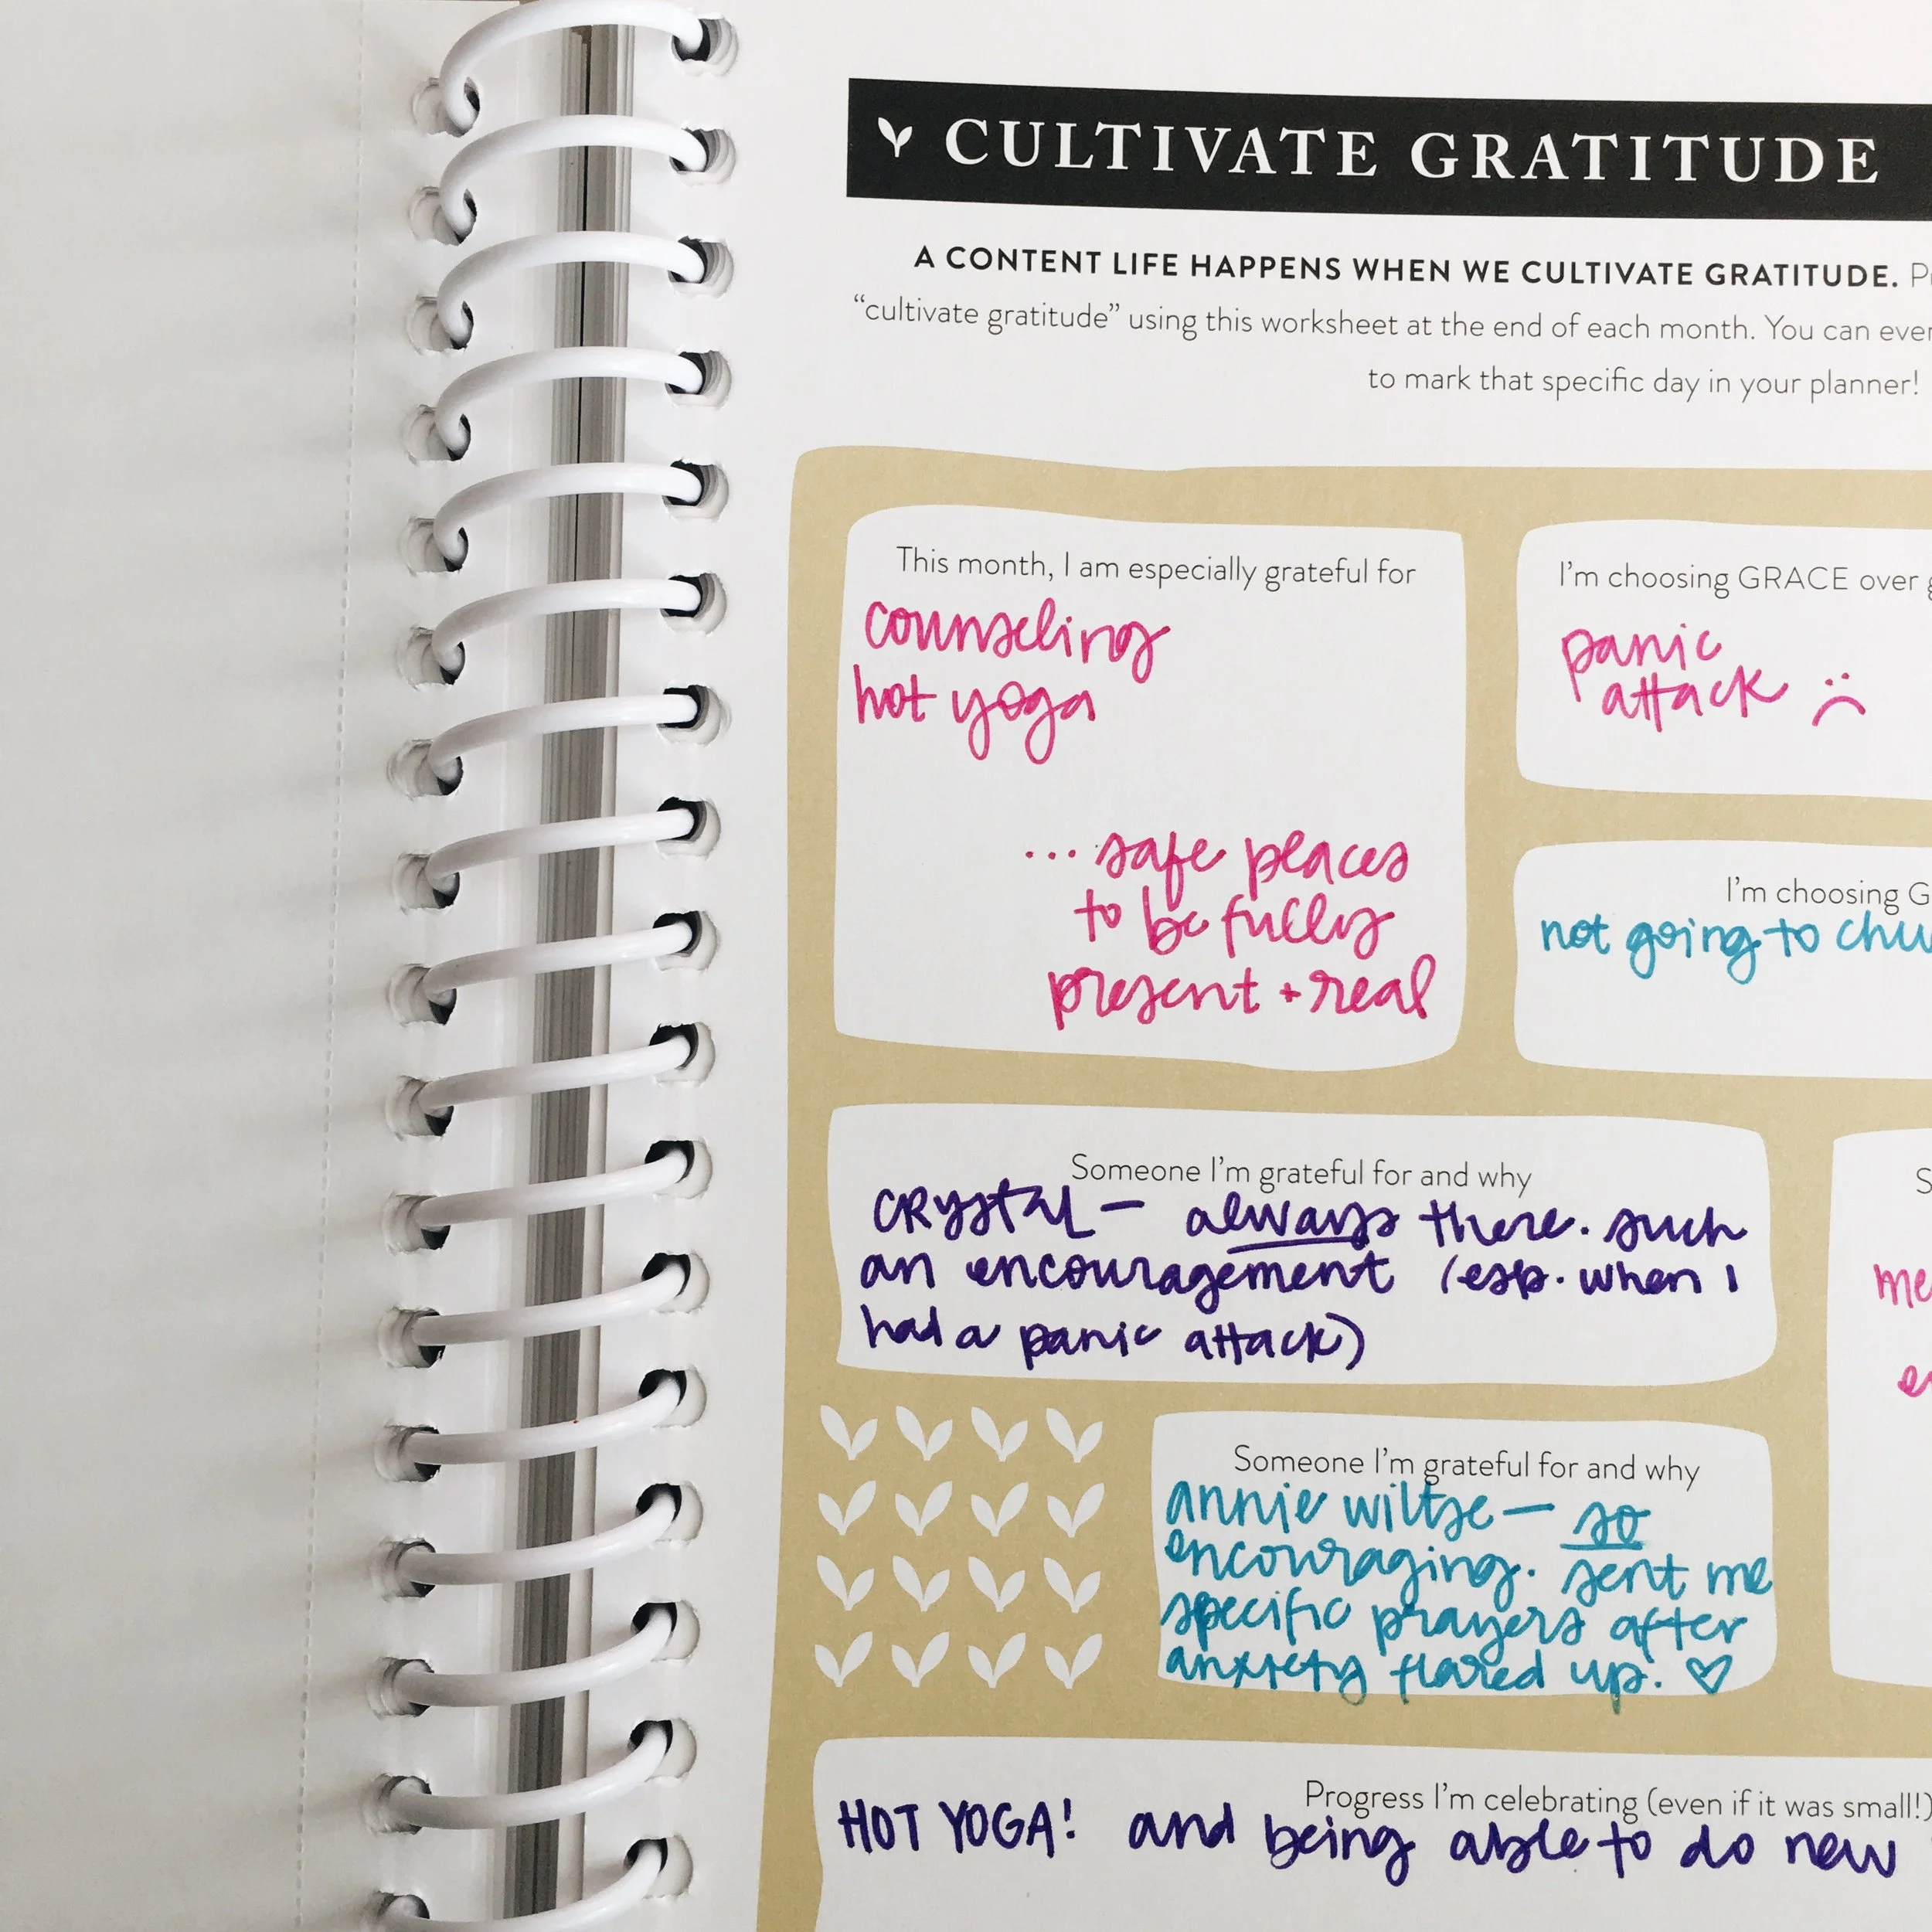 CULTIVATE GRATITUDE
A CONTENT LIFE HAPPENS WHEN WE CULTIVATE GRATITUDE.
"cultivate gratitude" using this worksheet at the end of each month. You can even
to mark that specific day in your planner!
This month, I am especially grateful for
counseling
hot yoga
... safe places
to be fully
present + real
I'm choosing GRACE over
panic
attack :(
I'm choosing
not going to
Someone I'm grateful for and why
CRYSTAL — always there. such
an encouragement (esp. when I
had a panic attack)
Someone I'm grateful for and why
annie wiltse — so
encouraging. sent me
specific prayers after
anxiety flared up. ♡
Progress I'm celebrating (even if it was small!)
HOT YOGA! and being able to do new